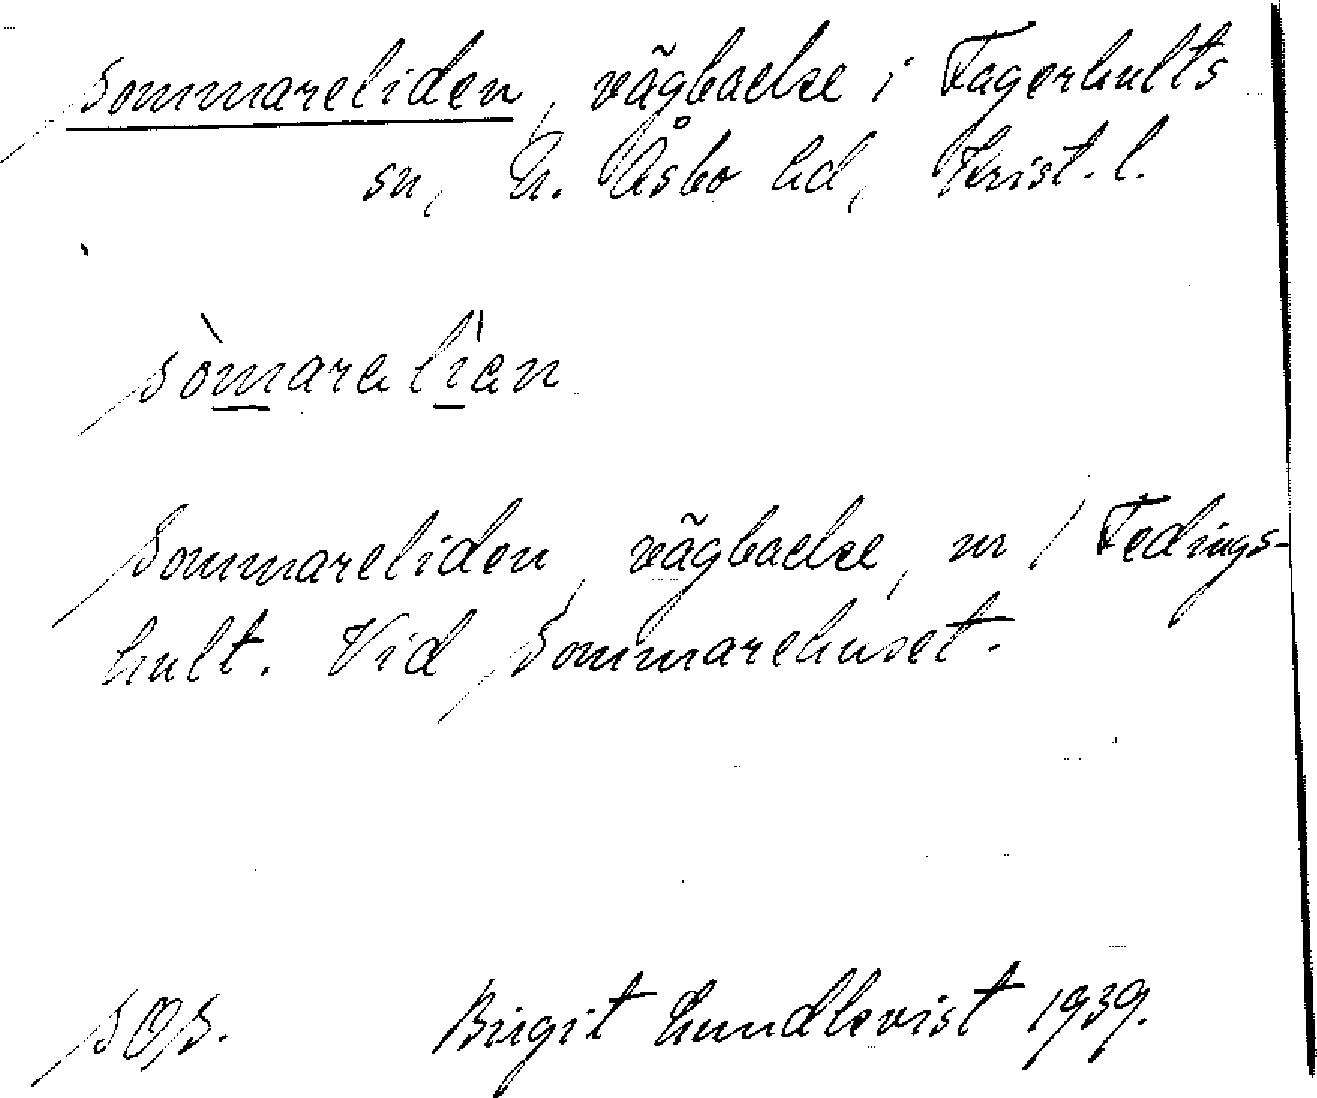 Sommareliden, vägbacke i Fagerhults
sn, N. Åsbo hd, Krist. l.
sòmarelìen
Sommareliden, vägbacke, nr 1 Fedings-
hult. Vid Sommarehuset.
SOS. Birgit Lundkvist 1939.